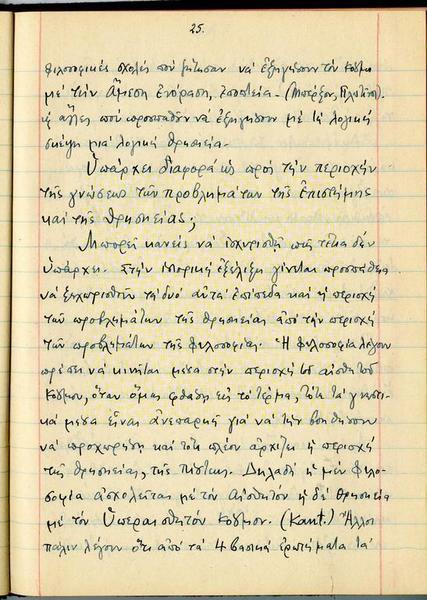 25.
φιλοσοφικές σχολές που ζήτησαν να εξηγήσουν τον κόσμο
με την Άμεση ενόραση, εποπτεία. (Μπερξόν, Πλωτίνο).
ή άλλες που προσπαθούν να εξηγήσουν με τη λογική
σκέψη μιά λογική θρησκεία.
Ὑπάρχει διαφορά ὡς πρός τήν περιοχήν
τῆς γνώσεως τῶν προβλημάτων τῆς ἐπιστήμης
καί τῆς θρησκείας;
Μπορεῖ κανείς νά ἰσχυρισθῇ πώς τέτοια δέν
ὑπάρχει. Στήν ἱστορική ἐξέλιξη γίνεται προσπάθεια
νά ξεχωρισθοῦν τά δυό αὐτά ἐπίπεδα καί ἡ περιοχή
τῶν προβλημάτων τῆς θρησκείας ἀπό τήν περιοχή
τῶν προβλημάτων τῆς φιλοσοφίας. Ἡ φιλοσοφία λέγουν
πρέπει νά κινῆται μέσα στήν περιοχή τοῦ αἰσθητοῦ
κόσμου, ὅταν ὅμως φθάση εἰς τό τέρμα, τότε τά γνωστι-
κά μέσα εἶναι ἀνεπαρκῆ γιά νά τήν βοηθήσουν
νά προχωρήση καί τότε πλέον ἀρχίζει ἡ περιοχή
τῆς θρησκείας, τῆς Πίστεως. Δηλαδή ἡ μέν φιλο-
σοφία ἀσχολεῖται μέ τόν Αἰσθητόν ἡ δέ θρησκεία
μέ τόν Ὑπεραισθητόν κόσμον. (Kant.) Ἄλλοι
πάλιν λέγουν ὅτι ἀπό τά 4 βασικά ἐρωτήματα τά